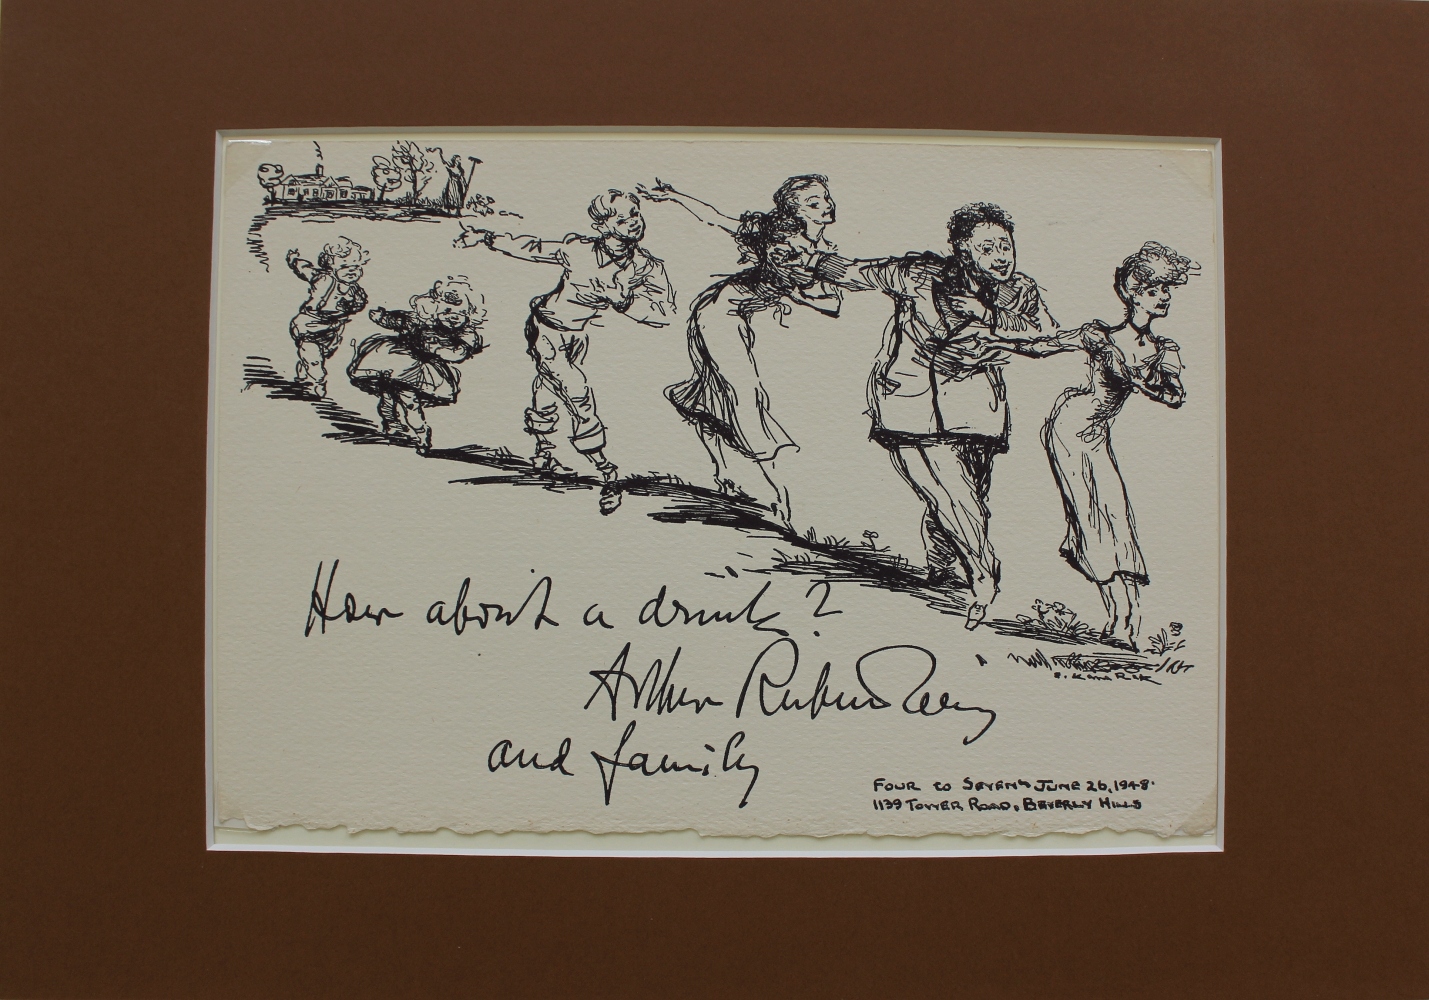 How about a drink?
Arthur Rubinstein
and family
E. Kana Rek
Four to Seven, June 26, 1948.
1139 Tower Road, Beverly Hills